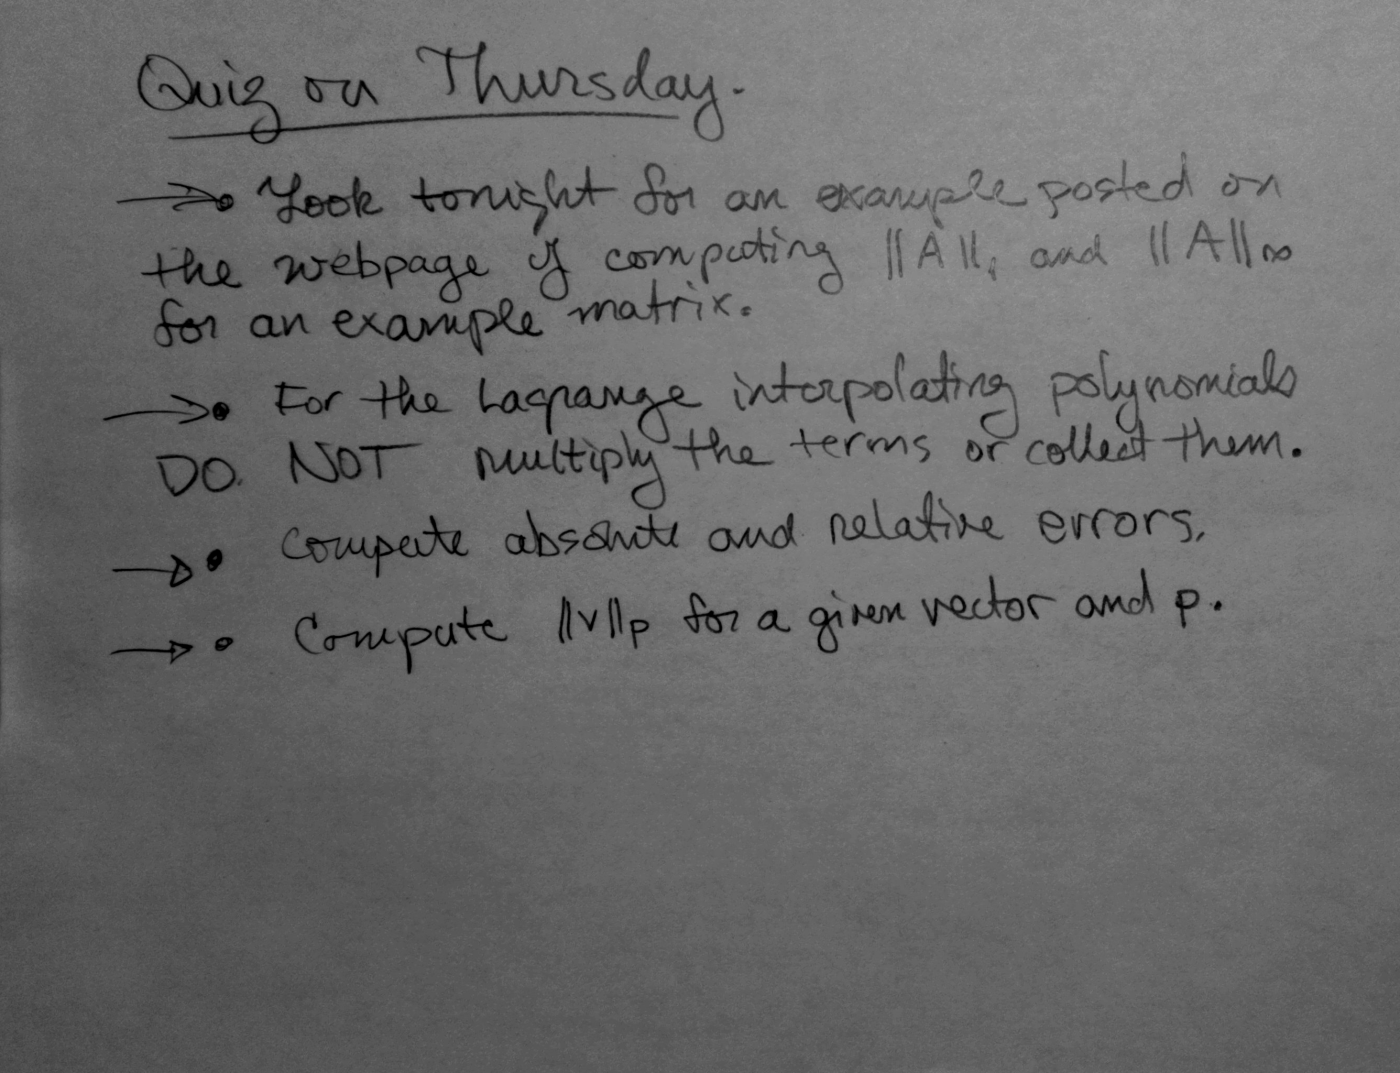 Quiz on Thursday.
→• Look tonight for an example posted on
the webpage of computing ||A||₁ and ||A||∞
for an example matrix.
→• For the Lagrange interpolating polynomials
DO. NOT multiply the terms or collect them.
→• Compute absolute and relative errors.
→• Compute ||v||ₚ for a given vector and p.